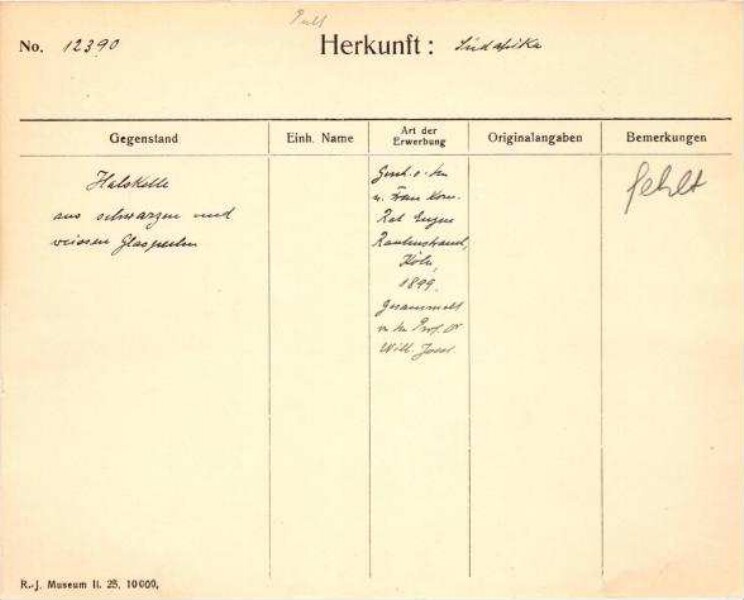 Pult
No. 12390 Herkunft: Südafrika
Gegenstand Einh. Name Art der Erwerbung Originalangaben Bemerkungen
Halskette
aus schwarzen und
weissen Glasperlen
Gesch. v. Hn
u. Frau Kom.
Rat Eugen
Rautenstrauch,
Köln,
1899.
Gesammelt
v. Hn Prof. Dr
Wilh. Joest.
fehlt
R.-J. Museum II. 28, 10000,